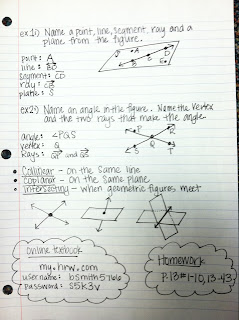 ex1) Name a point, line, segment, ray and a
plane from the figure.
point: A
line: BD
segment: CD
ray: CB
plane: S
ex2) Name an angle in the figure. Name the vertex
and the two rays that make the angle.
angle: ∠PQS
vertex: Q
Rays: QP and QS
P
R
Q
S
T
• Collinear - on the same line
• Coplanar - on the same plane
• Intersecting - when geometric figures meet
online textbook
my.hrw.com
username: bsmith5766
password: s5k3v
Homework
P.13 #1-10, 13-43